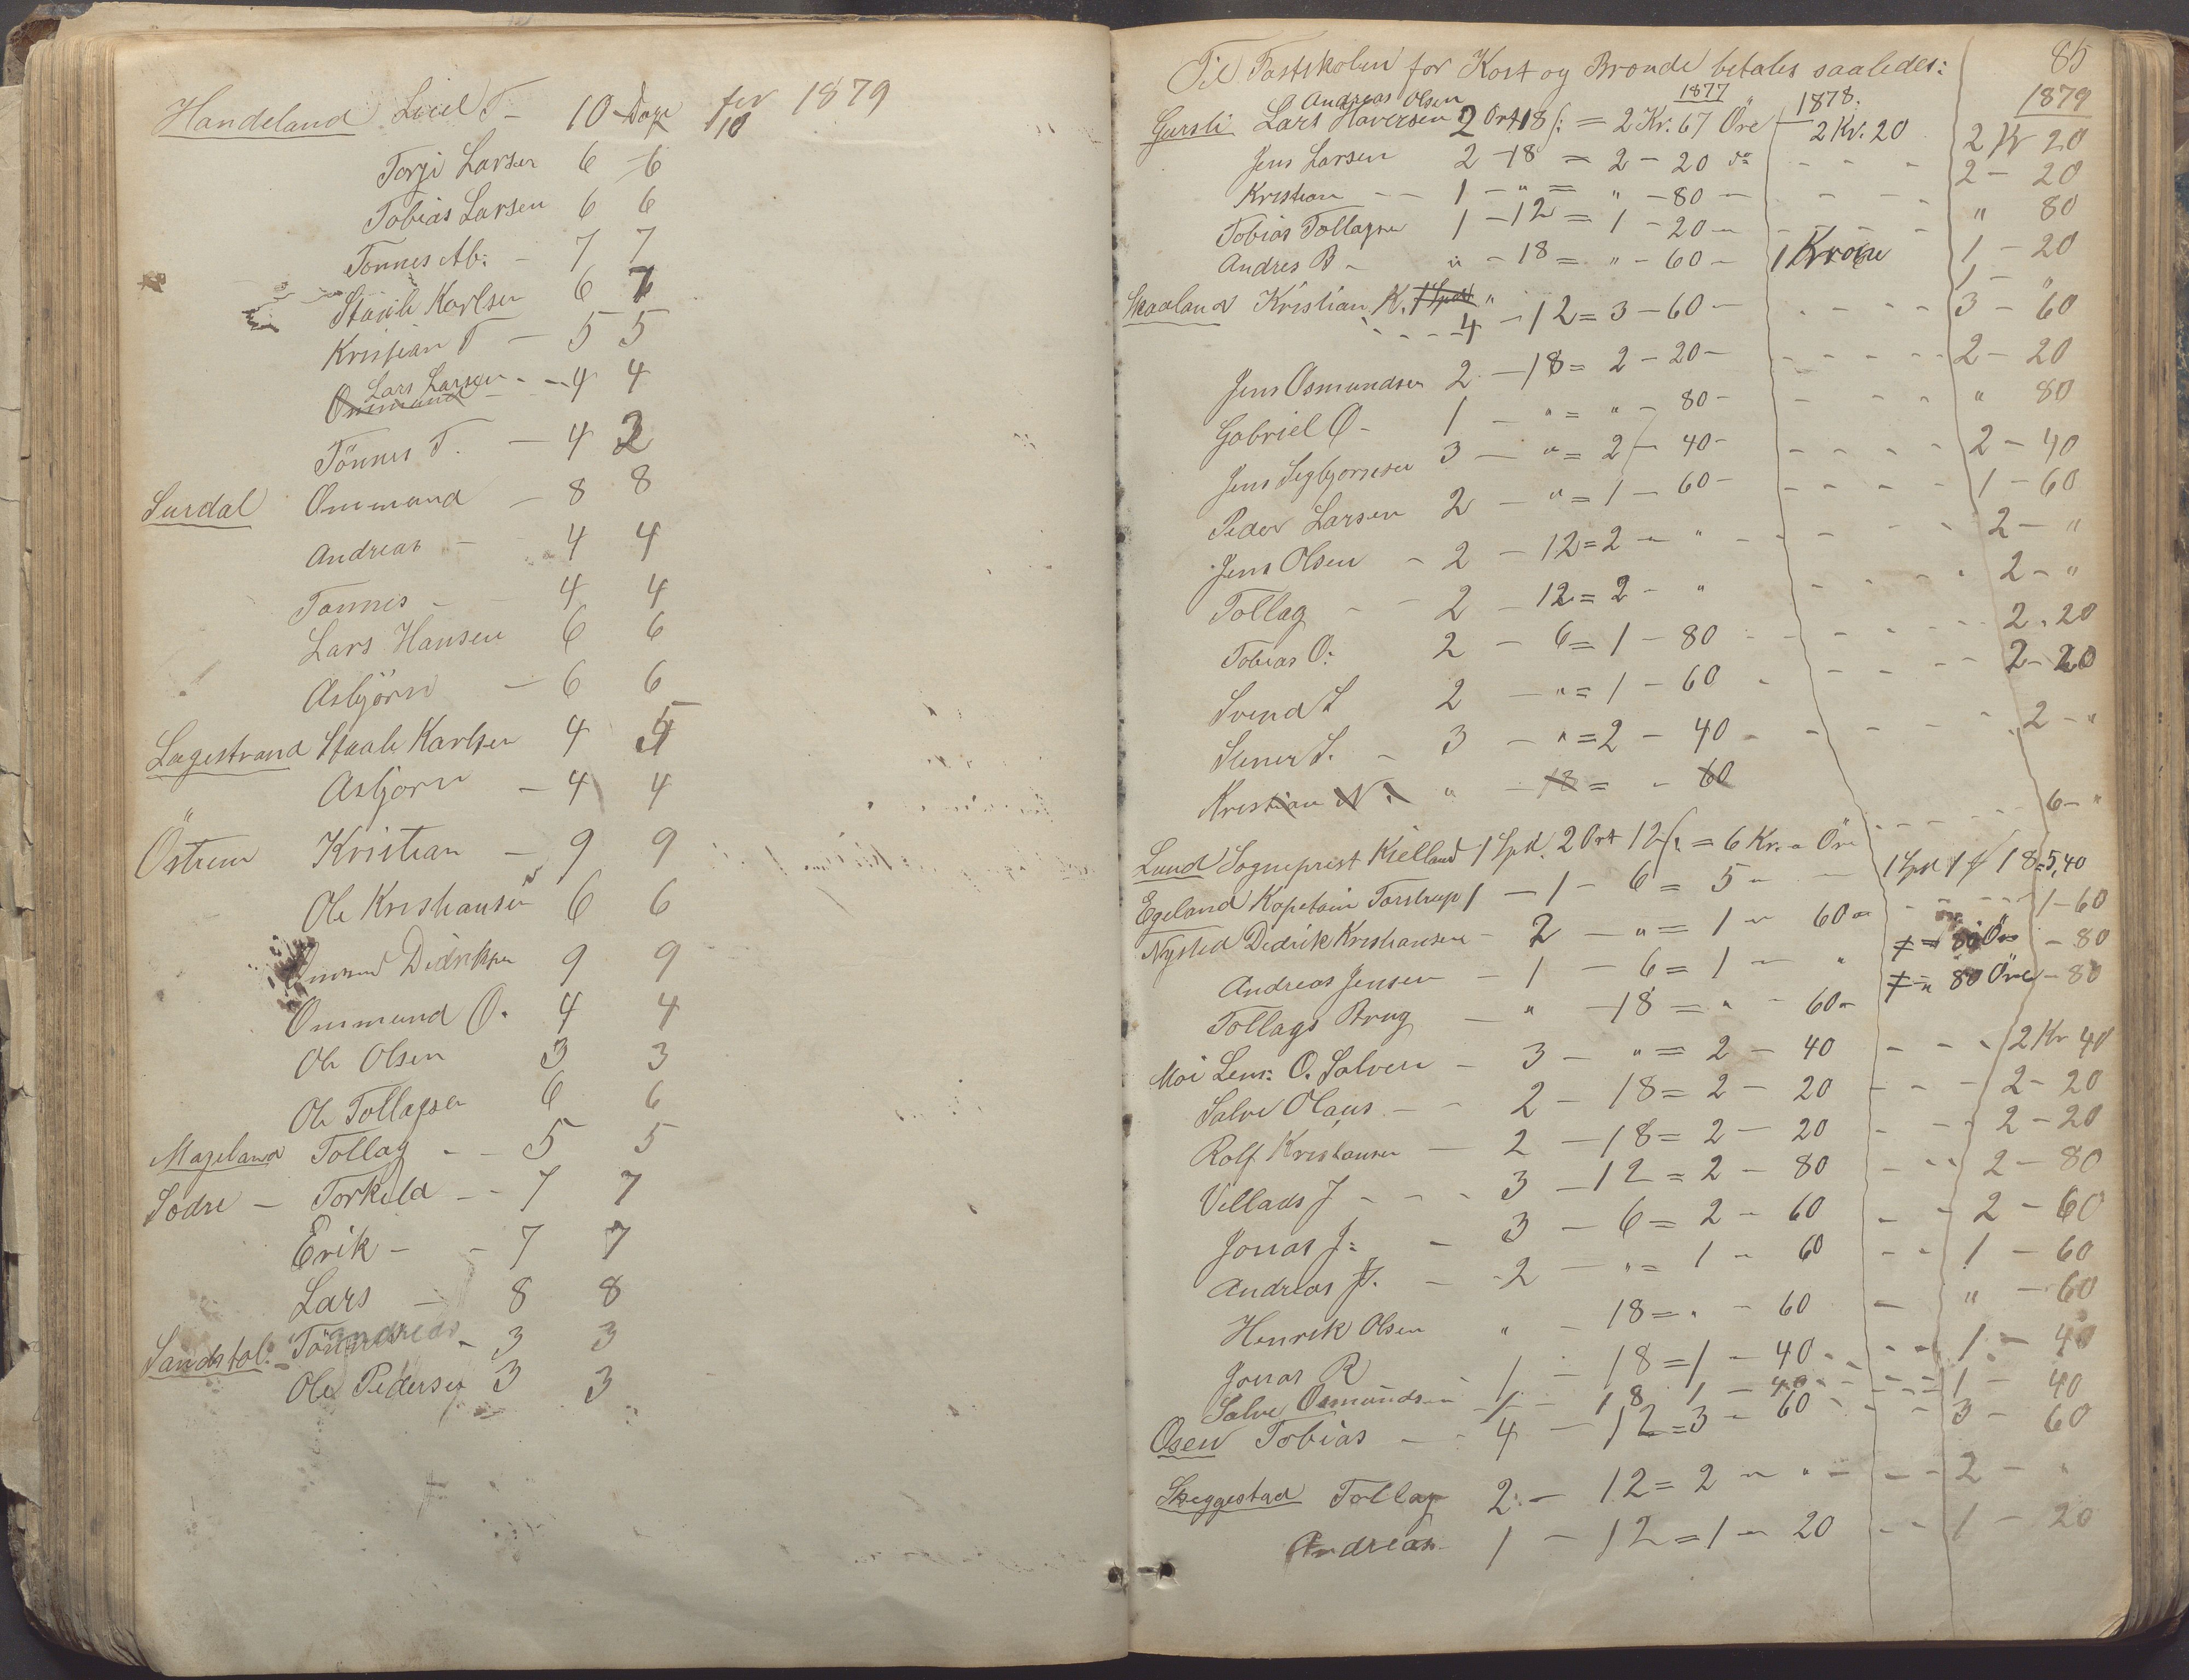 Handeland Loiel T - 10 - Dage for 1879
10
Torji Larsen 6 - 6
Tobias Larsen 6 6
Tonnes Ab: - 7 7
Staale Karlsen 6 7
Kristian T - 5 5
Lars Larsen
Ommund - - 4 4
Tönnes T. - 4 3
Surdal Ommund - 8 8
Andreas - 4 4
Tonnes - - 4 4
Lars Hansen 6 6
Asbjörn - 6 6
Lagestrand Staale Karlsen 4 5
Asbjorn - 4 4
Östrem Kristian - 9 9
Ole Kristiansen 6 6
Ommund Didriksen 9 9
Ommund O. 4 4
Ole Olsen 3 3
Ole Tollagsen 6 6
Mageland Tollag - - 5 5
Södre - Torkild - - 7 7
Erik - - 7 7
Lars - 8 8
Sandstöl: Andreas - 3 3
Ole Pedersen 3 3
85
Til Fastskolen for Kost og Brænde betales saaledes:
Andreas Olsen 1877 1878. 1879
Gursli Lars Haversen 2 Ort 18 /: = 2 Kr. 67 Öre 2 Kr. 20 2 Kr 20
Jens Larsen 2 - 18 = 2 - 20 do - - - 2 - 20
Kristian - - 1 - " = " - 80 - - - - " 80
Tobias Tollagsen 1 - 12 = 1 - 20 - - - - 1 - 20
Andres B - " - 18 = " - 60 - 1 Krone 1 - "
Skaaland Kristian K. 1 Spd "
- - - 4 - 12 = 3 - 60 - - - - 3 - 60
Jens Osmundsen 2 - 18 = 2 - 20 - - - - - 2 - 20
Gabriel O - 1 - " = " - 80 - - - - " 80
Jens Sigbjornsen 3 - " = 2 - 40 - - - - - 2 - 40
Peder Larsen 2 - " = 1 - 60 - - - - - 1 - 60
Jens Olsen - 2 - 12 = 2 - " - - - - 2 - "
Tollag - - 2 - 12 = 2 - " - - - 2 - "
Tobias O: 2 - 6 = 1 - 80 - - - - 2 - 20
Svend S 2 - " = 1 - 60 - - - - 2 - 20
Stener S. - 3 - " = 2 - 40 - - - - 2 - "
Kristian N. " - 18 = - 60
Lund Sogneprest Kielland 1 Spd. 2 Ort 12 /: = 6 Kr. " Öre - - - - 6 - "
Egeland Kapetain Torstrup 1 - 1 - 6 = 5 - " - 1 Spd 1 18 = 5,40
Nysted Didrik Kristiansen - 2 - " = 1 - 60 - - - - 1 - 60
Andreas Jensen - 1 - 6 = 1 - " 80 Öre - 80
Tollags Brug - " - 18 = " - 60 - 80 Öre - 80
Moi Lens: O. Salvesen - 3 - " = 2 - 40 - - - 2 Kr 40
Salve Olaus - - 2 - 18 = 2 - 20 - - - 2 - 20
Rolf Kristiansen - 2 - 18 = 2 - 20 - - - 2 - 20
Villads J - - - 3 - 12 = 2 - 80 - - - 2 - 80
Jonas J: - 3 - 6 = 2 - 60 - - 2 - 60
Andreas J. - - 2 - " = 1 - 60 - - 1 - 60
Henrik Olsen " - 18 = " - 60 - " - 60
Jonas R 1 - 18 = 1 - 40 - - - - 1 - 40
Salve Osmundsen - 1 - 18 1 - 40 - - - - 1 - 40
Osen Tobias - - 4 - 12 = 3 - 60 - - - - 3 - 60
Skeggestad Tollag 2 - 12 = 2 - " - - - 2 - "
Andreas 1 - 12 = 1 - 20 - - 1 - 20